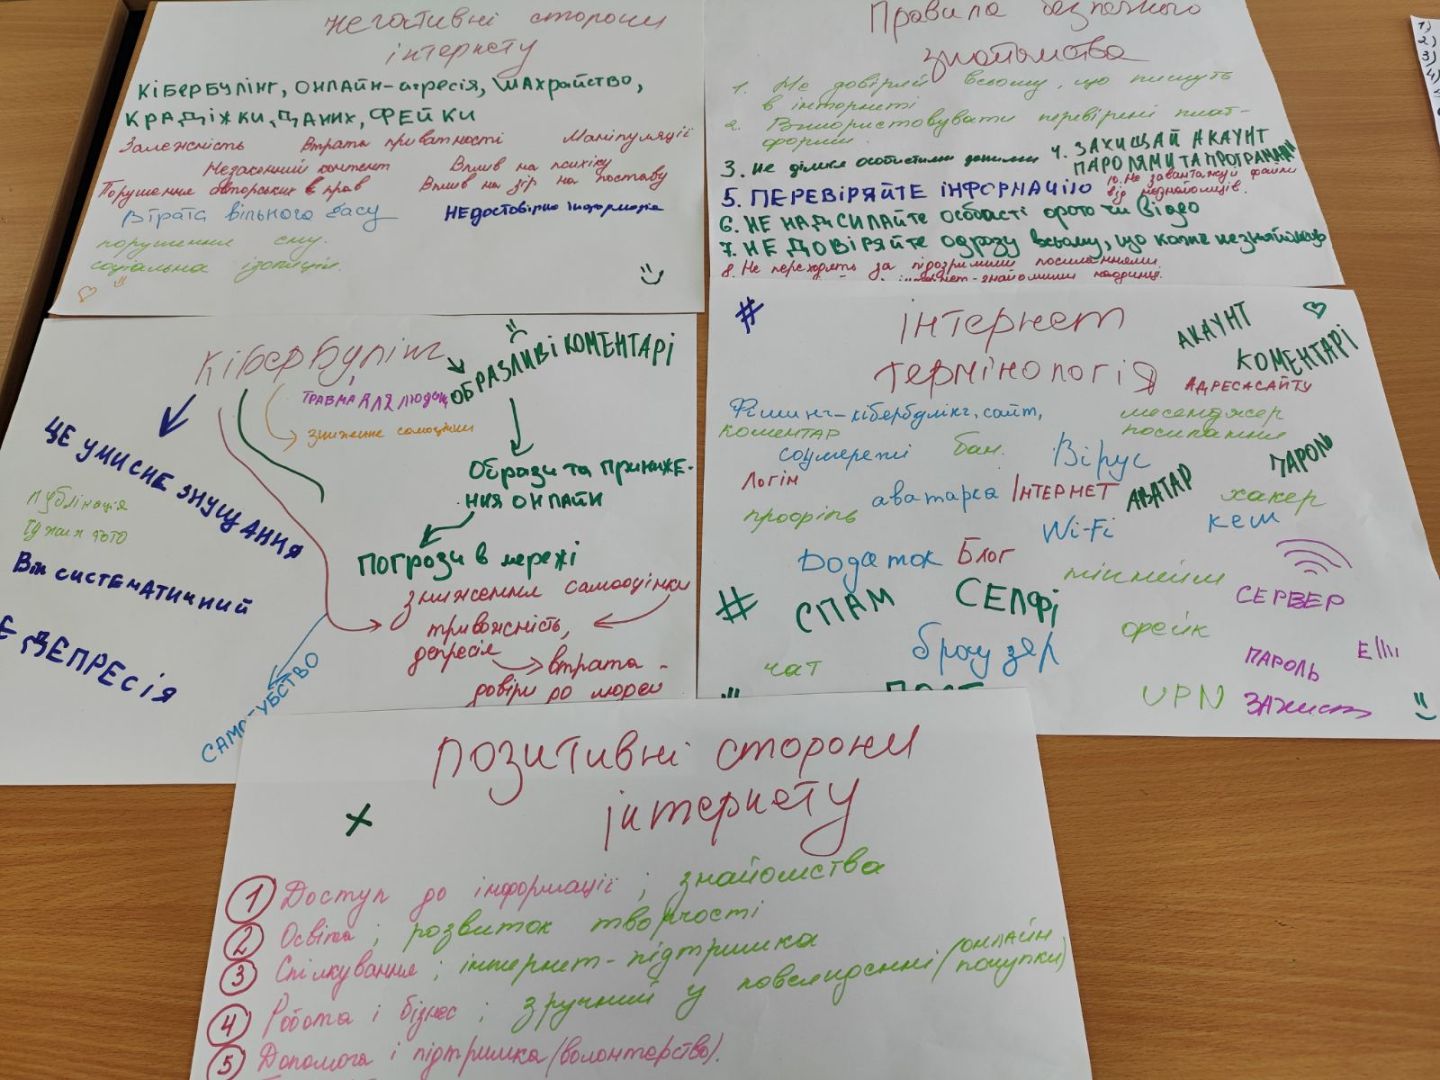 негативні сторони
інтернету
КІБЕРБУЛІНГ, ОНЛАЙН-агресія, ШАХРАЙСТВО,
КРАДІЖКИ, ДАНИХ, ФЕЙКИ
Залежність Втрата приватності Маніпуляції
Незаконний контент Вплив на психіку
Порушення авторських прав Вплив на зір на поставу
Втрата вільного часу НЕдостовірна інформація
порушення сну.
соціальна ізоляція.
Правила безпечного
знайомства
1. Не довіряй всьому, що пишуть
в інтернеті
2. Використовувати перевірені плат-
форми.
3. Не ділися особистими даними
4. ЗАХИЩАЙ АКАУНТ
ПАРОЛЯМИ ТА ПРОГРАМАМИ
5. ПЕРЕВІРЯЙТЕ ІНФОРМАЦІЮ
10. Не завантажуй файли
від незнайомців.
6. НЕ НАДСИЛАЙТЕ особисті фото чи відео
7. НЕ ДОВІРЯЙТЕ одразу всьому, що каже незнайомець
8. Не переходять за підозрілими посиланнями
інтернет-знайомими наодинці.
Кібербулінг
ОБРАЗЛИВІ КОМЕНТАРІ
ТРАВМА ДЛЯ людей
зниження самооцінки
ЦЕ УМИСНЕ ЗНУЩАННЯ
Образи та приниже-
ння онлайн
публікація
чужих фото
Він систематичний
Погрози в мережі
зниження самооцінки
тривожність,
депресія
втрата
довіри до людей
Є ДЕПРЕСІЯ
САМОГУБСТВО
# інтернет
термінологія
АКАУНТ
КОМЕНТАРІ
АДРЕСА САЙТУ
Фішинг-кібербулінг, сайт,
месенджер
посилання
коментар
соцмережі бан. Вірус
ПАРОЛЬ
Логін
аватарка ІНТЕРНЕТ АВАТАР хакер
профіль
Wi-Fi кеш
Додаток Блог
нікнейм
СЕРВЕР
# СПАМ СЕЛФІ
фейк
браузер
чат
ПАРОЛЬ
ПОСТ
VPN Захист
позитивні сторони
інтернету
1 Доступ до інформації; знайомства
2 Освіта; розвиток творчості
3 Спілкування; інтернет-підтримка
4 Робота і бізнес; зручний у повсякденні (онлайн
покупки)
5 Допомога і підтримка (волонтерство).